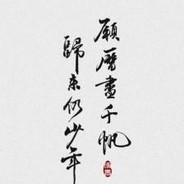 願歷盡千帆
歸來仍少年